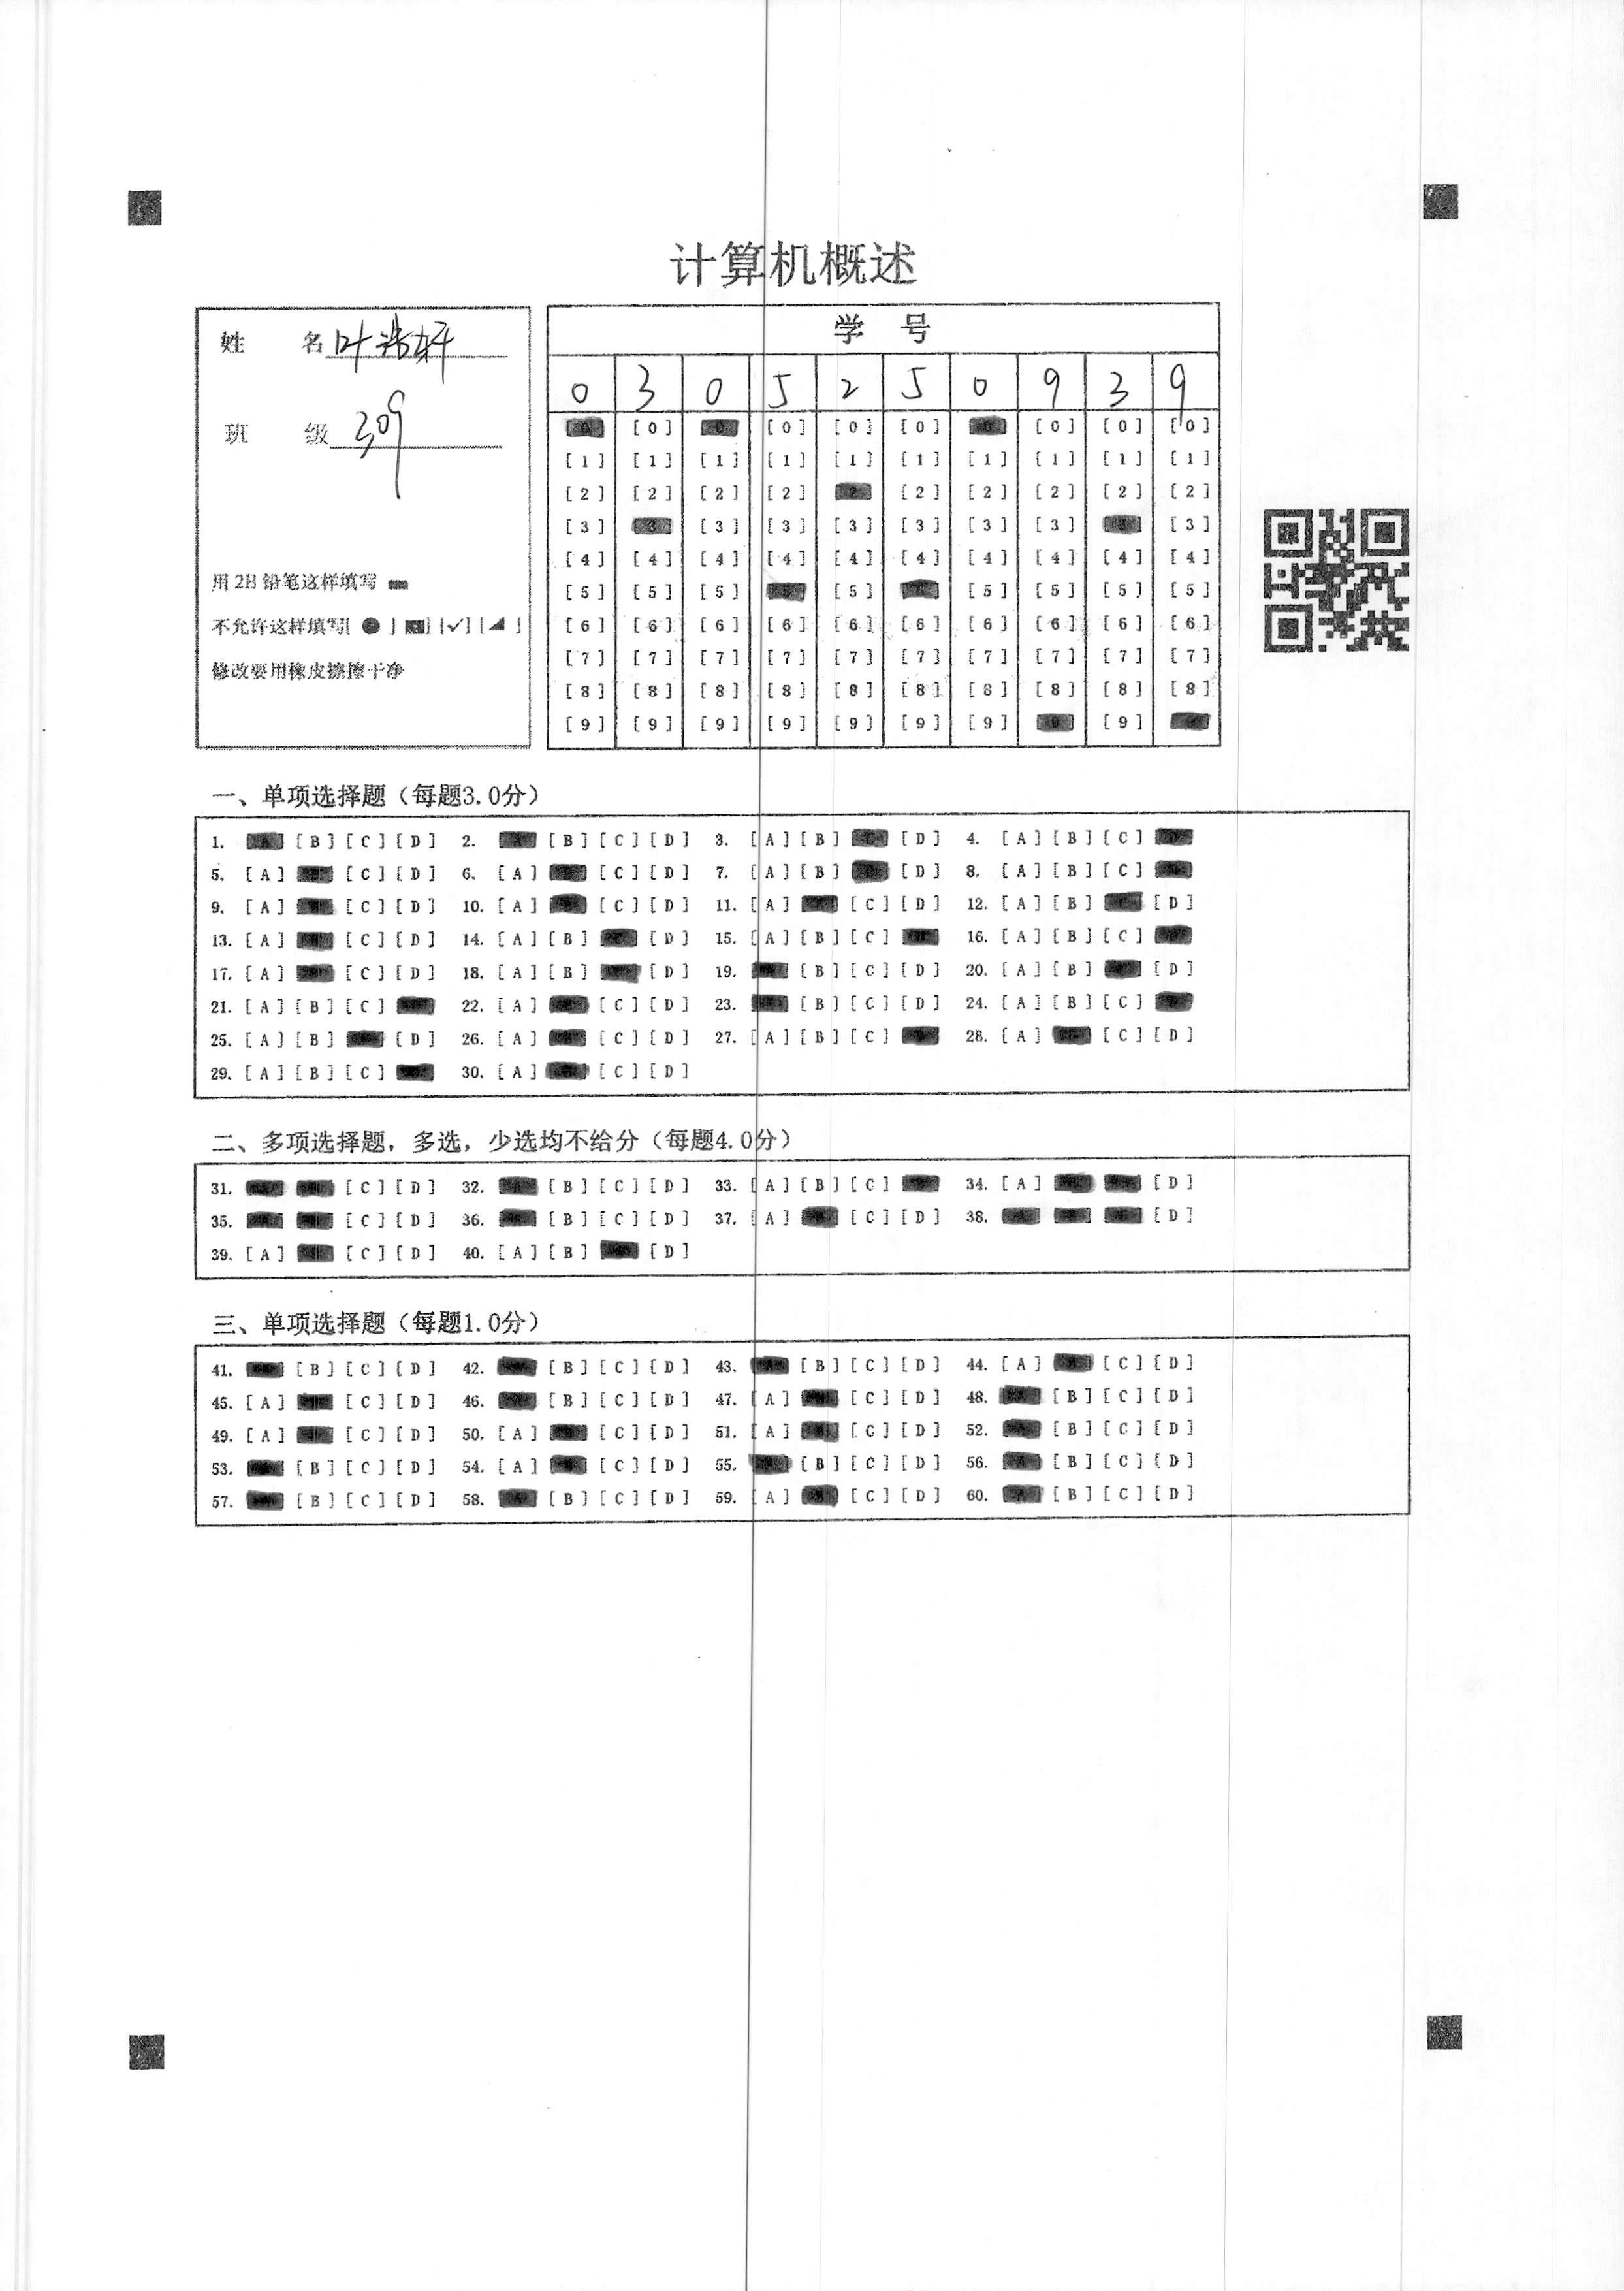 计算机概述
姓 名 叶浩轩
班 级 309
用 2B 铅笔这样填写
不允许这样填写[ ● ] [ ] [✓] [◢ ]
修改要用橡皮擦擦干净
学 号
0 3 0 5 2 5 0 9 3 9
[0] [0] [0] [0] [0] [0] [0] [0] [0] [0]
[1] [1] [1] [1] [1] [1] [1] [1] [1] [1]
[2] [2] [2] [2] [2] [2] [2] [2] [2] [2]
[3] [3] [3] [3] [3] [3] [3] [3] [3] [3]
[4] [4] [4] [4] [4] [4] [4] [4] [4] [4]
[5] [5] [5] [5] [5] [5] [5] [5] [5] [5]
[6] [6] [6] [6] [6] [6] [6] [6] [6] [6]
[7] [7] [7] [7] [7] [7] [7] [7] [7] [7]
[8] [8] [8] [8] [8] [8] [8] [8] [8] [8]
[9] [9] [9] [9] [9] [9] [9] [9] [9] [9]
一、单项选择题（每题3.0分）
1. [B] [C] [D] 2. [B] [C] [D] 3. [A] [B] [D] 4. [A] [B] [C]
5. [A] [C] [D] 6. [A] [C] [D] 7. [A] [B] [D] 8. [A] [B] [C]
9. [A] [C] [D] 10. [A] [C] [D] 11. [A] [C] [D] 12. [A] [B] [D]
13. [A] [C] [D] 14. [A] [B] [D] 15. [A] [B] [C] 16. [A] [B] [C]
17. [A] [C] [D] 18. [A] [B] [D] 19. [B] [C] [D] 20. [A] [B] [D]
21. [A] [B] [C] 22. [A] [C] [D] 23. [B] [C] [D] 24. [A] [B] [C]
25. [A] [B] [D] 26. [A] [C] [D] 27. [A] [B] [C] 28. [A] [C] [D]
29. [A] [B] [C] 30. [A] [C] [D]
二、多项选择题，多选，少选均不给分（每题4.0分）
31. [C] [D] 32. [B] [C] [D] 33. [A] [B] [C] 34. [A] [D]
35. [C] [D] 36. [B] [C] [D] 37. [A] [C] [D] 38. [D]
39. [A] [C] [D] 40. [A] [B] [D]
三、单项选择题（每题1.0分）
41. [B] [C] [D] 42. [B] [C] [D] 43. [B] [C] [D] 44. [A] [C] [D]
45. [A] [C] [D] 46. [B] [C] [D] 47. [A] [C] [D] 48. [B] [C] [D]
49. [A] [C] [D] 50. [A] [C] [D] 51. [A] [C] [D] 52. [B] [C] [D]
53. [B] [C] [D] 54. [A] [C] [D] 55. [B] [C] [D] 56. [B] [C] [D]
57. [B] [C] [D] 58. [B] [C] [D] 59. [A] [C] [D] 60. [B] [C] [D]